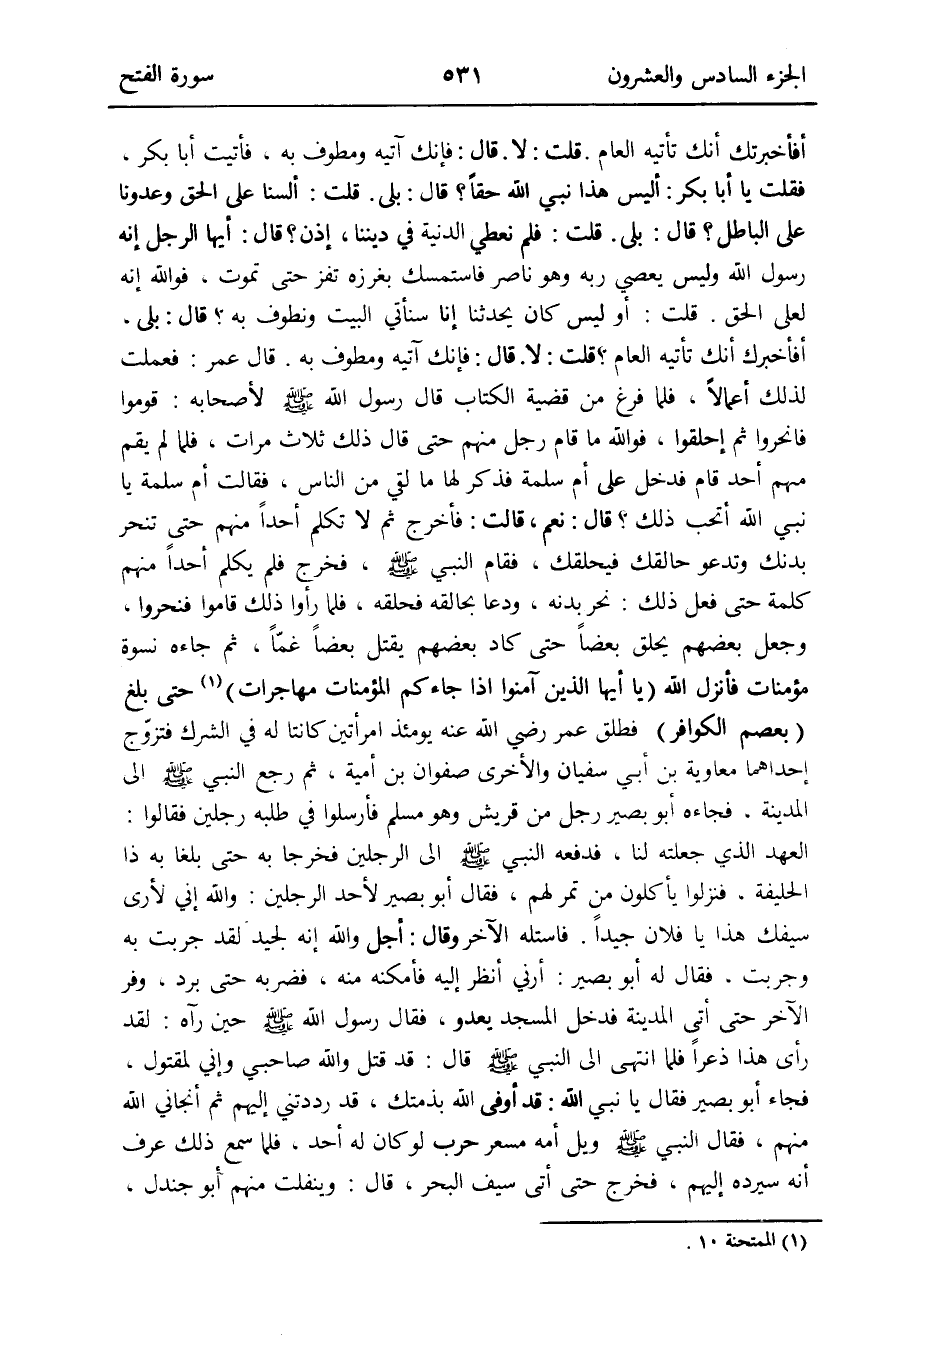 الجزء السادس والعشرون ٥٣١ سورة الفتح
أفأخبرتك أنك تأتيه العام . قلت : لا . قال : فإنك آتيه ومطوف به ، فأتيت أبا بكر ،
فقلت يا أبا بكر : أليس هذا نبي الله حقاً ؟ قال : بلى . قلت : ألسنا على الحق وعدونا
على الباطل ؟ قال : بلى . قلت : فلم نعطي الدنية في ديننا ، إذن ؟ قال : أيها الرجل إنه
رسول الله وليس يعصي ربه وهو ناصر فاستمسك بغرزه تفز حتى تموت ، فوالله إنه
لعلى الحق . قلت : أو ليس كان يحدثنا إنا سنأتي البيت ونطوف به ؟ قال : بلى .
أفأخبرك أنك تأتيه العام ؟ قلت : لا . قال : فإنك آتيه ومطوف به . قال عمر : فعملت
لذلك أعمالاً ، فلما فرغ من قضية الكتاب قال رسول الله ﷺ لأصحابه : قوموا
فانحروا ثم إحلقوا ، فوالله ما قام رجل منهم حتى قال ذلك ثلاث مرات ، فلما لم يقم
منهم أحد قام فدخل على أم سلمة فذكر لها ما لقي من الناس ، فقالت أم سلمة يا
نبي الله أتحب ذلك ؟ قال : نعم ، قالت : فأخرج ثم لا تكلم أحداً منهم حتى تنحر
بدنك وتدعو حالقك فيحلقك ، فقام النبي ﷺ ، فخرج فلم يكلم أحداً منهم
كلمة حتى فعل ذلك : نحر بدنه ، ودعا بحالقه فحلقه ، فلما رأوا ذلك قاموا فنحروا ،
وجعل بعضهم يحلق بعضاً حتى كاد بعضهم يقتل بعضاً غمّاً ، ثم جاءه نسوة
مؤمنات فأنزل الله (يا أيها الذين آمنوا اذا جاءكم المؤمنات مهاجرات)(١) حتى بلغ
(بعصم الكوافر) فطلق عمر رضي الله عنه يومئذ امرأتين كانتا له في الشرك فتزوّج
إحداهما معاوية بن أبي سفيان والأخرى صفوان بن أمية ، ثم رجع النبي ﷺ الى
المدينة . فجاءه أبو بصير رجل من قريش وهو مسلم فأرسلوا في طلبه رجلين فقالوا :
العهد الذي جعلته لنا ، فدفعه النبي ﷺ الى الرجلين فخرجا به حتى بلغا به ذا
الحليفة . فنزلوا يأكلون من تمر لهم ، فقال أبو بصير لأحد الرجلين : والله إني لأرى
سيفك هذا يا فلان جيداً . فاستله الآخر وقال : أجل والله إنه لجيد لقد جربت به
وجربت . فقال له أبو بصير : أرني أنظر إليه فأمكنه منه ، فضربه حتى برد ، وفر
الآخر حتى أتى المدينة فدخل المسجد يعدو ، فقال رسول الله ﷺ حين رآه : لقد
رأى هذا ذعراً فلما انتهى الى النبي ﷺ قال : قد قتل والله صاحبي وإني لمقتول ،
فجاء أبو بصير فقال يا نبي الله : قد أوفى الله بذمتك ، قد رددتني إليهم ثم أنجاني الله
منهم ، فقال النبي ﷺ ويل أمه مسعر حرب لو كان له أحد ، فلما سمع ذلك عرف
أنه سيرده إليهم ، فخرج حتى أتى سيف البحر ، قال : وينفلت منهم أبو جندل ،
(١) الممتحنة ١٠ .